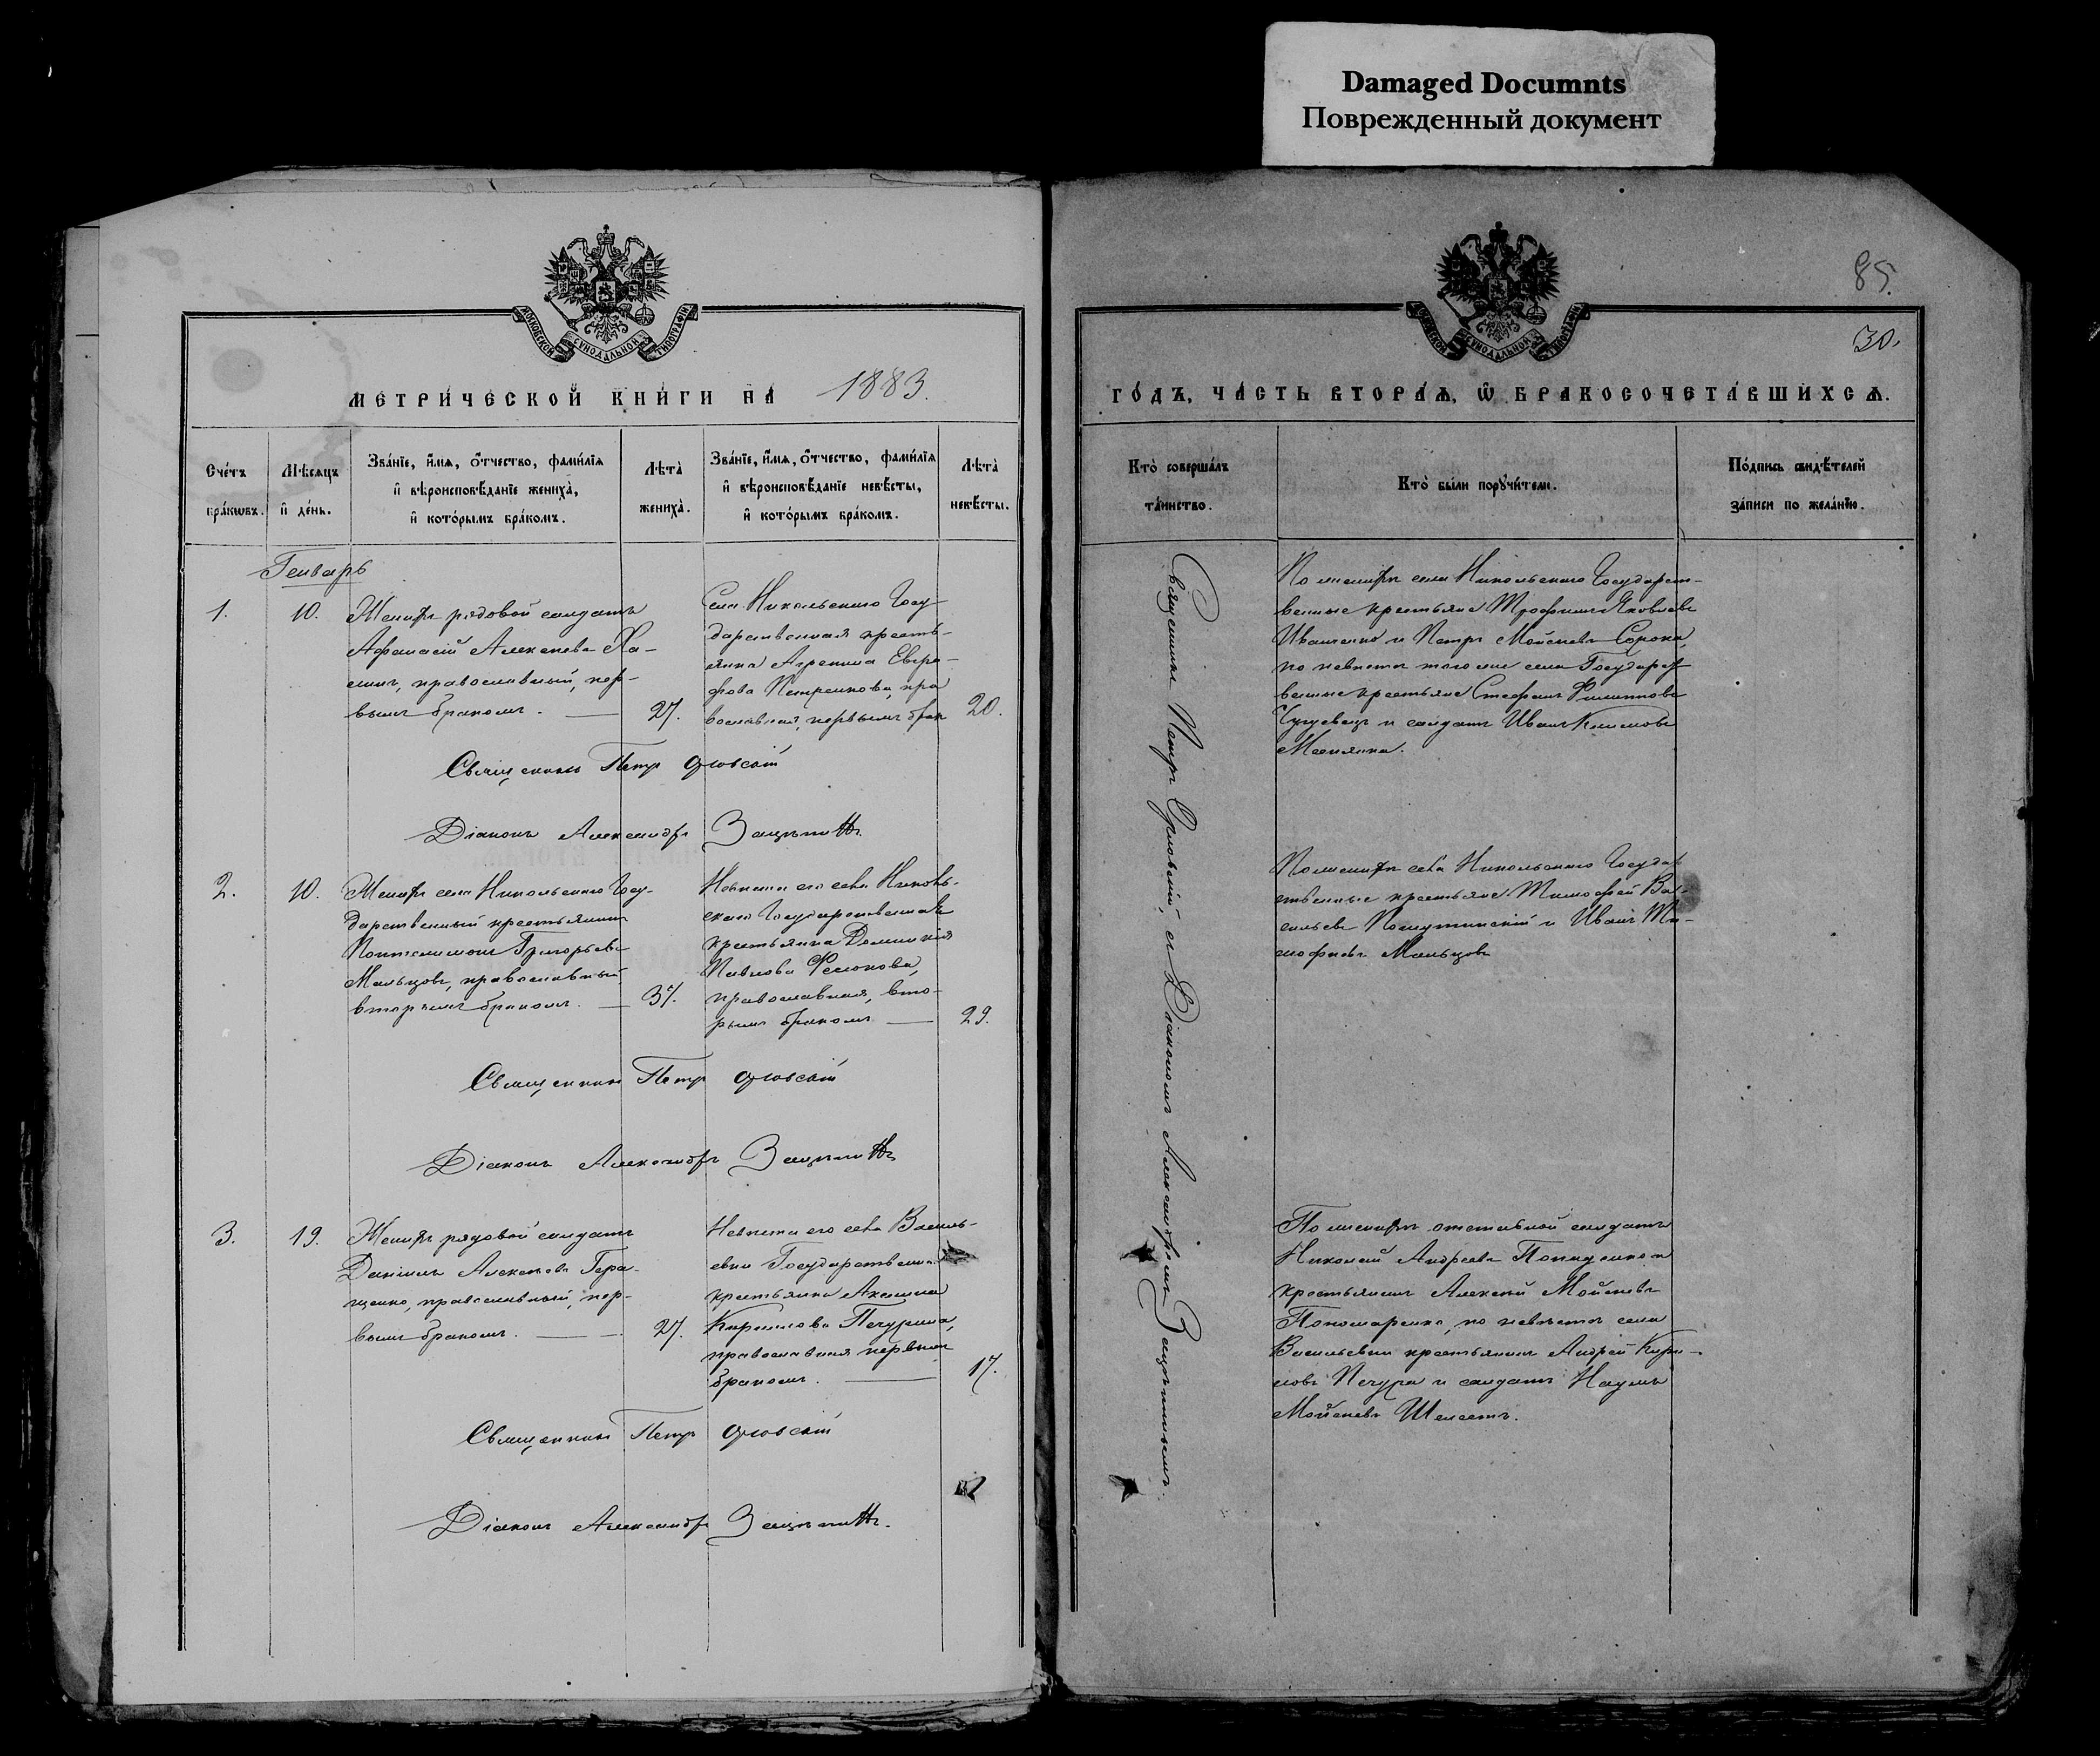 Damaged Documnts
Поврежденный документ
МОСКОВСКОЙ СУНОДАЛЬНОЙ ТИПОГРАФІИ
МЕТРИ́ЧЕСКОЙ КНИ́ГИ НА 1883.
Сче́тъ бра́кѡвъ.
Мѣ́сяцъ и де́нь.
Зва́нїе, и́мя, о́тчество, фами́лїя
и вѣроисповѣ́данїе жениха̀,
и кото́рымъ бра́комъ.
Лѣта̀ жениха̀.
Зва́нїе, и́мя, о́тчество, фами́лїя
и вѣроисповѣ́данїе невѣ́сты,
и кото́рымъ бра́комъ.
Лѣта̀ невѣ́сты.
Генварь
1.
10.
Женихъ рядовой солдатъ
Афанасій Алексѣевъ Ха-
, православный, пер-
вымъ бракомъ.
27.
Села Никольскаго Госу-
дарственная кресть-
янка Агрепина Евгра-
фова Петренкова, пра
вославная, первымъ брак
20.
Священникъ Петръ Орловскій
Діаконъ Александръ
2.
10.
Женихъ села Никольскаго Госу-
дарственный крестьянинъ
Пантелимонъ Григорьевъ
Мальцовъ, православный,
вторымъ бракомъ.
37.
Невѣста его села Николь-
скаго Государственная
крестьянка Домникія
Павлова
православная, вто-
рымъ бракомъ
29.
Священникъ Петръ Орловскій
Діаконъ Александръ
3.
19.
Женихъ рядовой солдатъ
Даніилъ Алексѣевъ Гера-
щенко, православный, пер-
вымъ бракомъ.
27.
Невѣста его села Василь-
евки Государственная
крестьянка Акилина
Кирилова Печурина,
православная первымъ
бракомъ.
17.
Священникъ Петръ Орловскій
Діаконъ Александръ
85.
30.
МОСКОВСКОЙ СУНОДАЛЬНОЙ ТИПОГРАФІИ
ГО́ДЪ, ЧА́СТЬ ВТОРА́Ѧ, Ѡ БРАКОСОЧЕТА́ВШИХСѦ.
Кто̀ соверша́лъ
та́инство.
Кто̀ бы́ли порꙋчи́тели.
По́дпись свидѣ́телей
за́писи по жела́нїю.
Священникъ Петръ Орловскій, съ Діакономъ Александромъ
По женихѣ села Никольскаго Государст-
венные крестьяне Трофимъ Яковлевъ
Иваненко и Петръ Мойсеевъ Сорока,
по невѣстѣ того же села Государст
венные крестьяне Стефанъ Филиповъ
Чугуевецъ и солдатъ Иванъ Климовъ
По женихѣ села Никольскаго Государ
ственные крестьяне Тимофей Ва-
сильевъ и Иванъ Ти-
мофеевъ Мальцовъ
По женихѣ отставной солдатъ
Николай Андреевъ и
крестьянинъ Алексѣй Мойсеевъ
Пономаренко, по невѣстѣ села
Васильевки крестьянинъ Андрей Кири-
ловъ Печура и солдатъ Наумъ
Мойсеевъ Шелестъ.